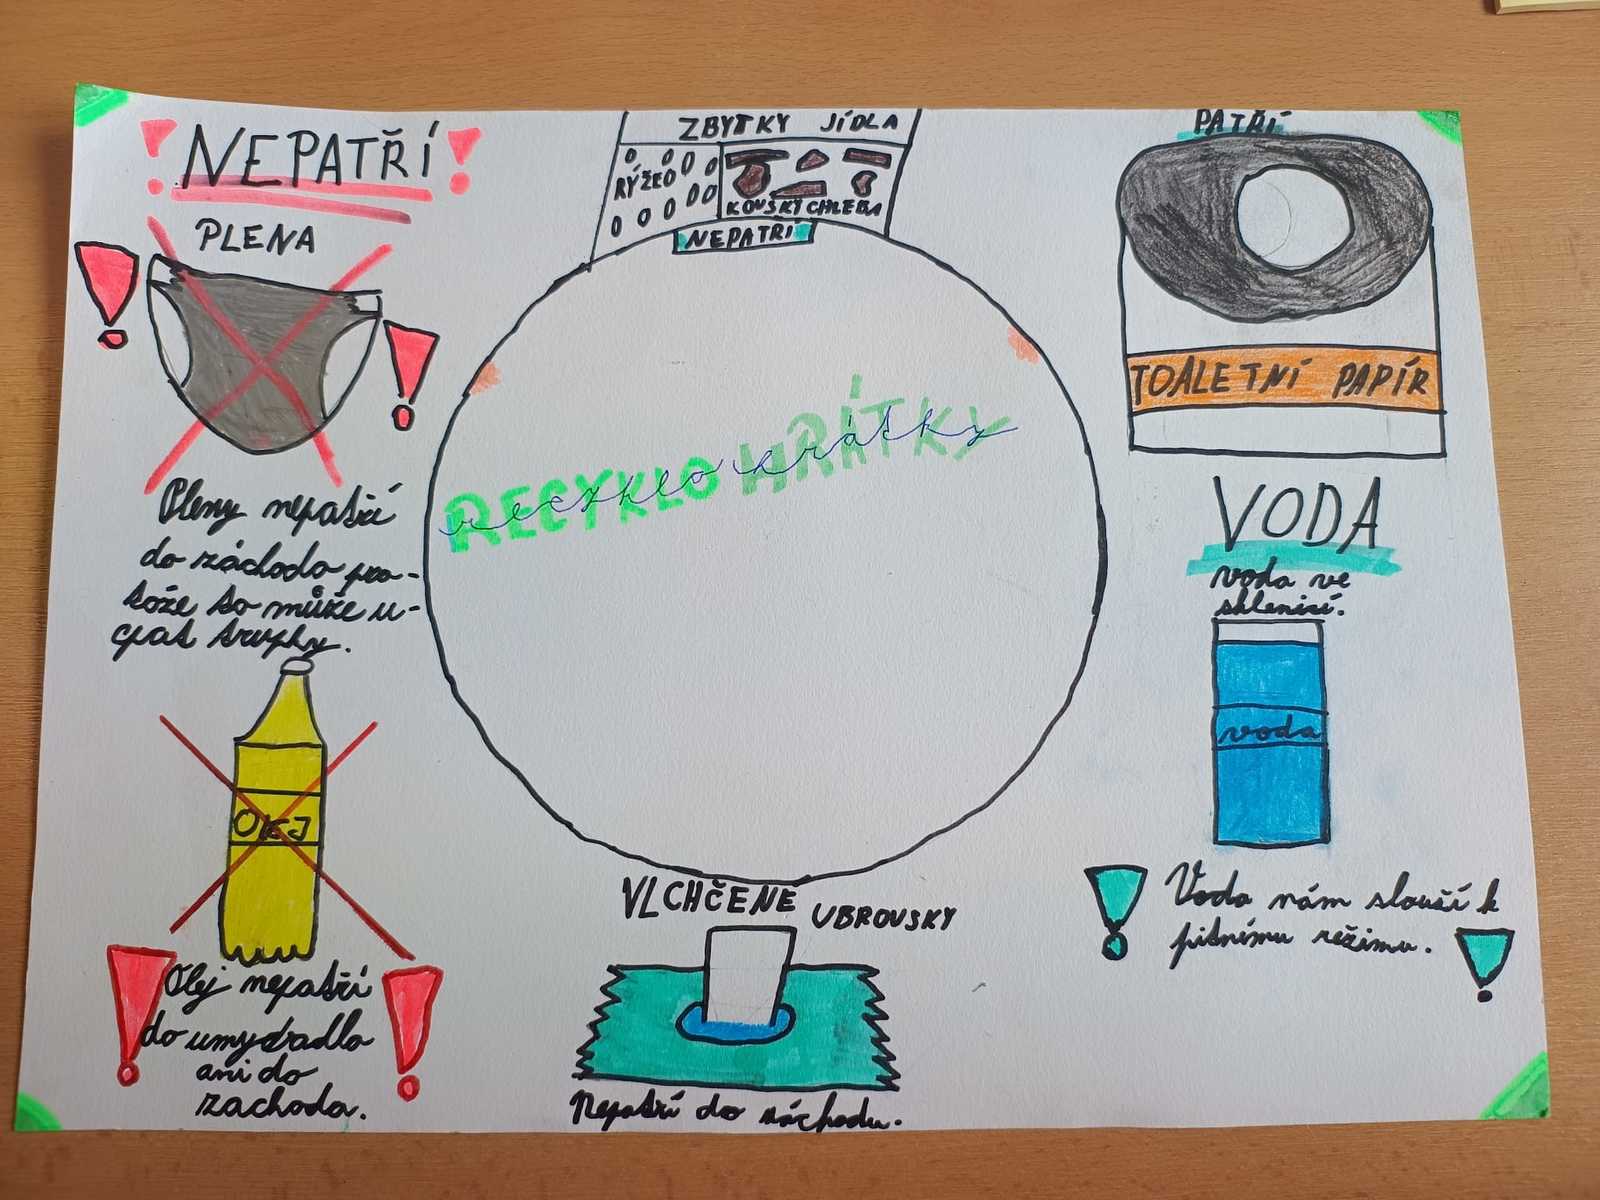 NEPATŘÍ
PLENA
Pleny nepatří
do záchodo pro-
tože to může u-
cpat truphy.
OKJ
Olej nepatří
do umydradla
ani do
zachoda.
ZBYTKY JÍDLA
RÝŽEO
KOUSKY CHLEBA
NEPATŘÍ
RECYKLO HRÁTKY
recyklo hrátky
VLCHČENE UBROUSKY
Nepatří do záchodu.
PATŘÍ
TOALETNÍ PAPÍR
VODA
voda ve
sklenici.
voda
Voda nám slouší k
pitnému režimu.